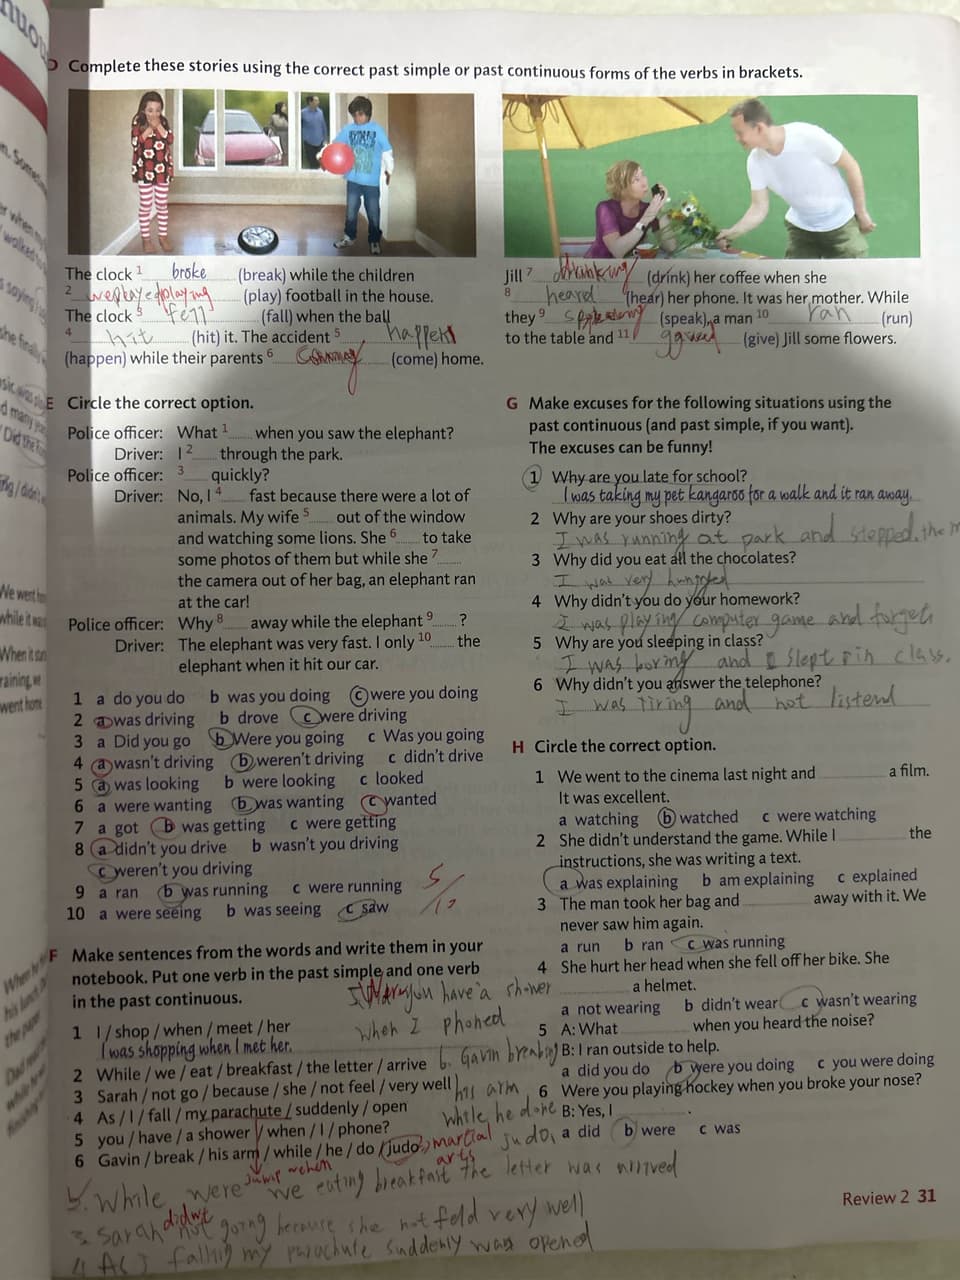 D Complete these stories using the correct past simple or past continuous forms of the verbs in brackets.
The clock 1 broke (break) while the children
2 playing (play) football in the house.
The clock 3 fell (fall) when the ball
4 hit (hit) it. The accident 5 happen
(happen) while their parents 6 coming (come) home.
Jill 7 drinking (drink) her coffee when she
8 heard (hear) her phone. It was her mother. While
they 9 (speak), a man 10 ran (run)
to the table and 11 (give) Jill some flowers.
E Circle the correct option.
Police officer: What 1 when you saw the elephant?
Driver: I 2 through the park.
Police officer: 3 quickly?
Driver: No, I 4 fast because there were a lot of
animals. My wife 5 out of the window
and watching some lions. She 6 to take
some photos of them but while she 7
the camera out of her bag, an elephant ran
at the car!
Police officer: Why 8 away while the elephant 9 ?
Driver: The elephant was very fast. I only 10 the
elephant when it hit our car.
1 a do you do b was you doing c were you doing
2 a was driving b drove c were driving
3 a Did you go b Were you going c Was you going
4 a wasn't driving b weren't driving c didn't drive
5 a was looking b were looking c looked
6 a were wanting b was wanting c wanted
7 a got b was getting c were getting
8 a didn't you drive b wasn't you driving
c weren't you driving
9 a ran b was running c were running
10 a were seeing b was seeing c saw
F Make sentences from the words and write them in your
notebook. Put one verb in the past simple and one verb
in the past continuous.
you have a shower
when I phoned
1 I / shop / when / meet / her
I was shopping when I met her.
2 While / we / eat / breakfast / the letter / arrive
6. Gavin breaking
3 Sarah / not go / because / she / not feel / very well
his arm
4 As / I / fall / my parachute / suddenly / open
while he done
5 you / have / a shower / when / I / phone?
judo,
6 Gavin / break / his arm / while / he / do / judo
martial
arts
While were we eating breakfast the letter was arrived
3. Sarah didn't not going because she not feld very well
4 As I falling my parachute suddenly was opened
G Make excuses for the following situations using the
past continuous (and past simple, if you want).
The excuses can be funny!
1 Why are you late for school?
I was taking my pet kangaroo for a walk and it ran away.
2 Why are your shoes dirty?
I was running at park and stepped the
3 Why did you eat all the chocolates?
I was very
4 Why didn't you do your homework?
I was playing computer game and forget
5 Why are you sleeping in class?
I was boring and slept in class.
6 Why didn't you answer the telephone?
I was tiring and not listend
H Circle the correct option.
1 We went to the cinema last night and a film.
It was excellent.
a watching b watched c were watching
2 She didn't understand the game. While I the
instructions, she was writing a text.
a was explaining b am explaining c explained
3 The man took her bag and away with it. We
never saw him again.
a run b ran c was running
4 She hurt her head when she fell off her bike. She
a helmet.
a not wearing b didn't wear c wasn't wearing
5 A: What when you heard the noise?
B: I ran outside to help.
a did you do b were you doing c you were doing
6 Were you playing hockey when you broke your nose?
B: Yes, I .
a did b were c was
Review 2 31